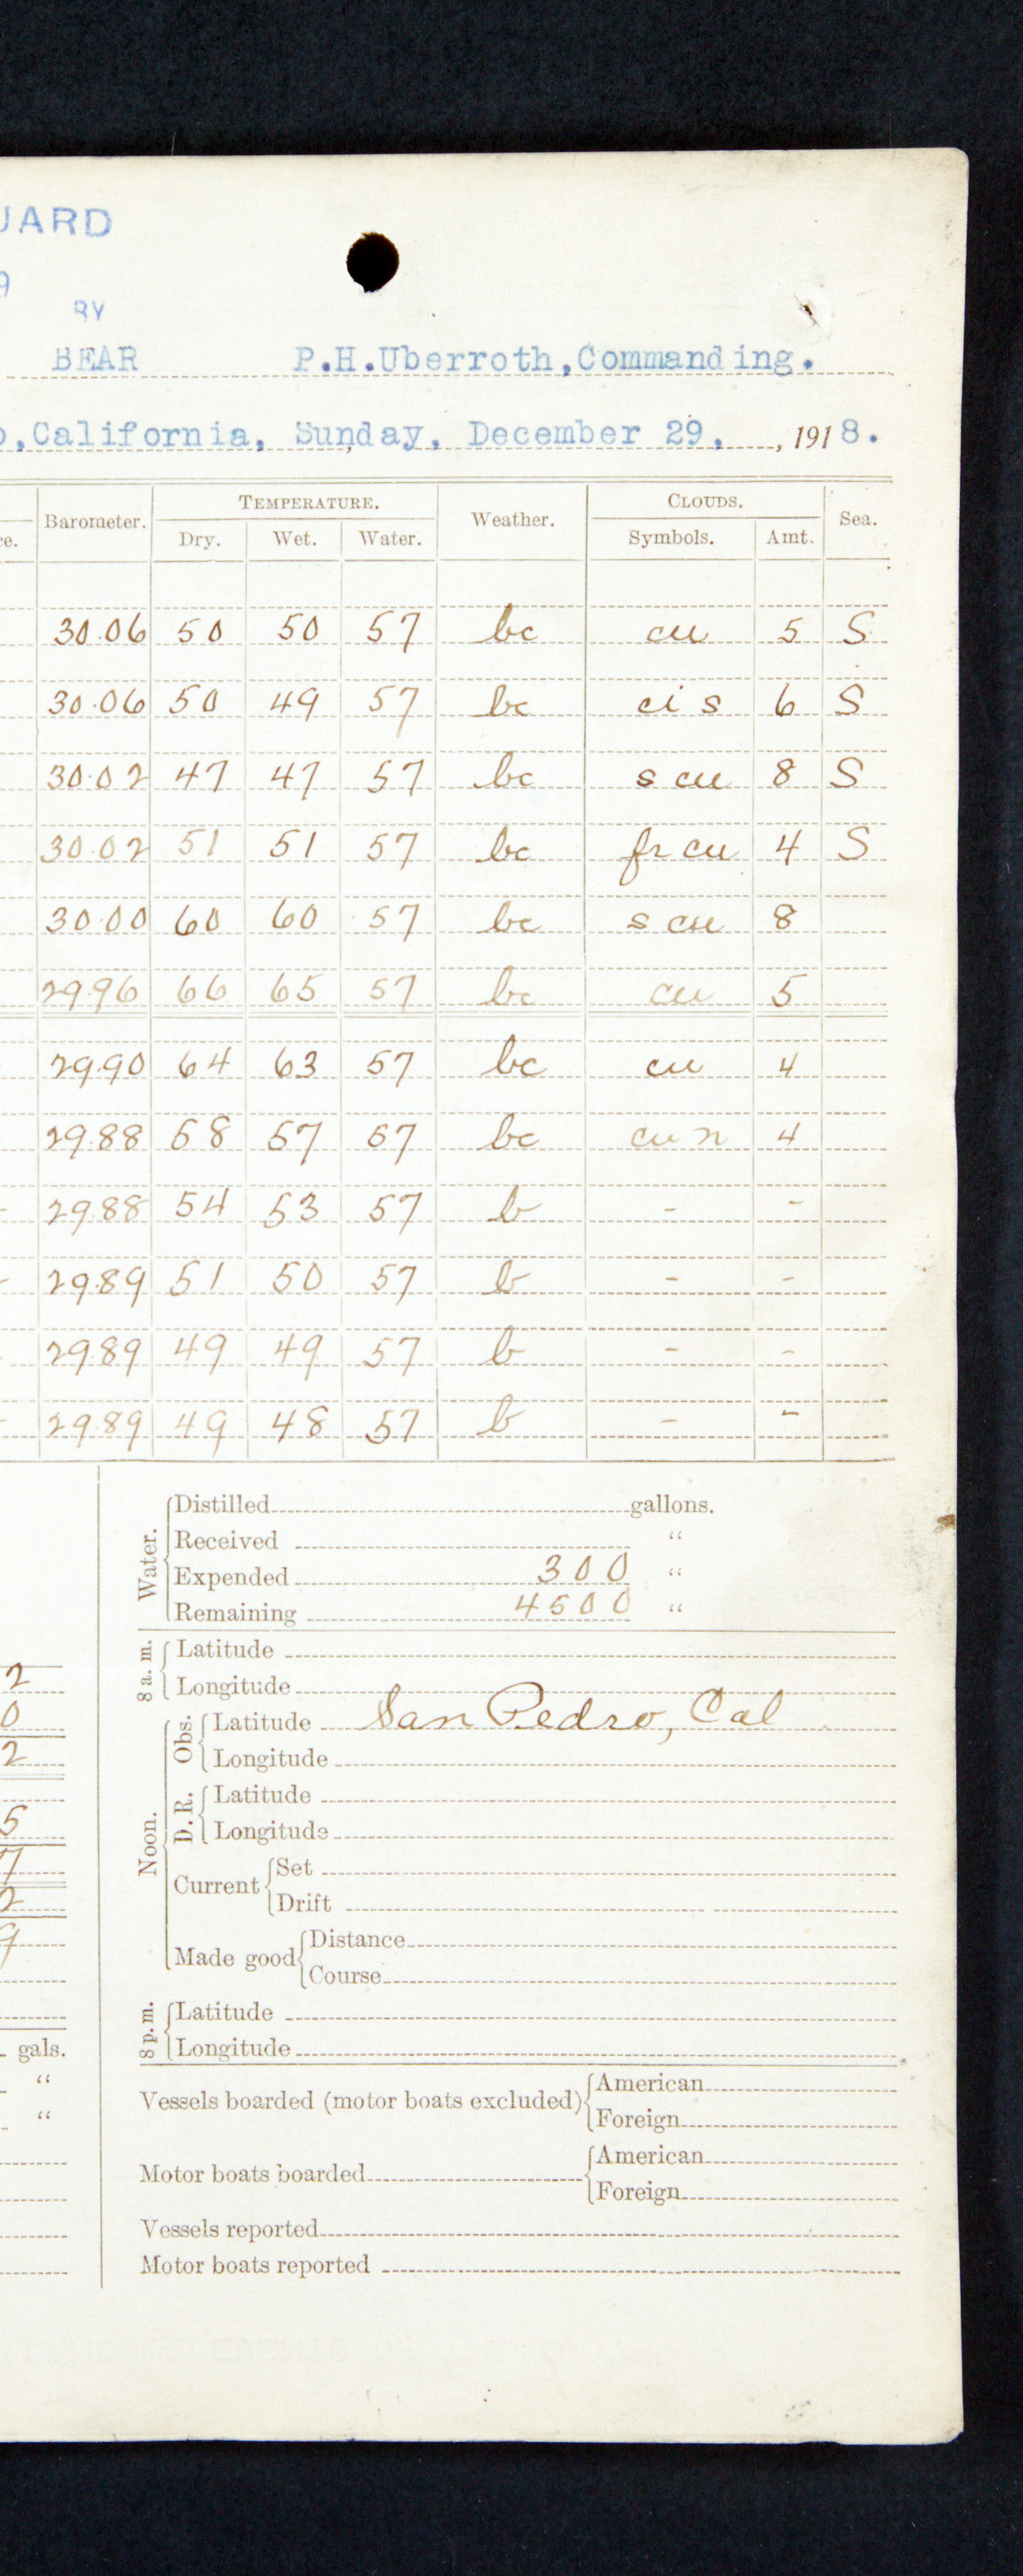 UARD
9
BY
BEAR P.H.Uberroth,Commanding.
o,California, Sunday, December 29, , 1918.
ce. Barometer. TEMPERATURE. Weather. CLOUDS. Sea.
Dry. Wet. Water. Symbols. Amt.
30.06 50 50 57 bc cu 5 S
30.06 50 49 57 bc ci s 6 S
30.02 47 47 57 bc s cu 8 S
30.02 51 51 57 bc fr cu 4 S
30.00 60 60 57 bc s cu 8
29.96 66 65 57 bc cu 5
29.90 64 63 57 bc cu 4
29.88 58 57 57 bc cu n 4
- 29.88 54 53 57 b - -
- 29.89 51 50 57 b - -
29.89 49 49 57 b - -
- 29.89 49 48 57 b - -
Water.
Distilled gallons.
Received "
Expended 300 "
Remaining 4500 "
8 a. m.
Latitude
Longitude
2
0
2
5
7
2
9
gals.
"
"
Noon.
Obs.
Latitude San Pedro, Cal
Longitude
D. R.
Latitude
Longitude
Current
Set
Drift
Made good
Distance
Course
8 p. m.
Latitude
Longitude
Vessels boarded (motor boats excluded)
American
Foreign
Motor boats boarded
American
Foreign
Vessels reported
Motor boats reported